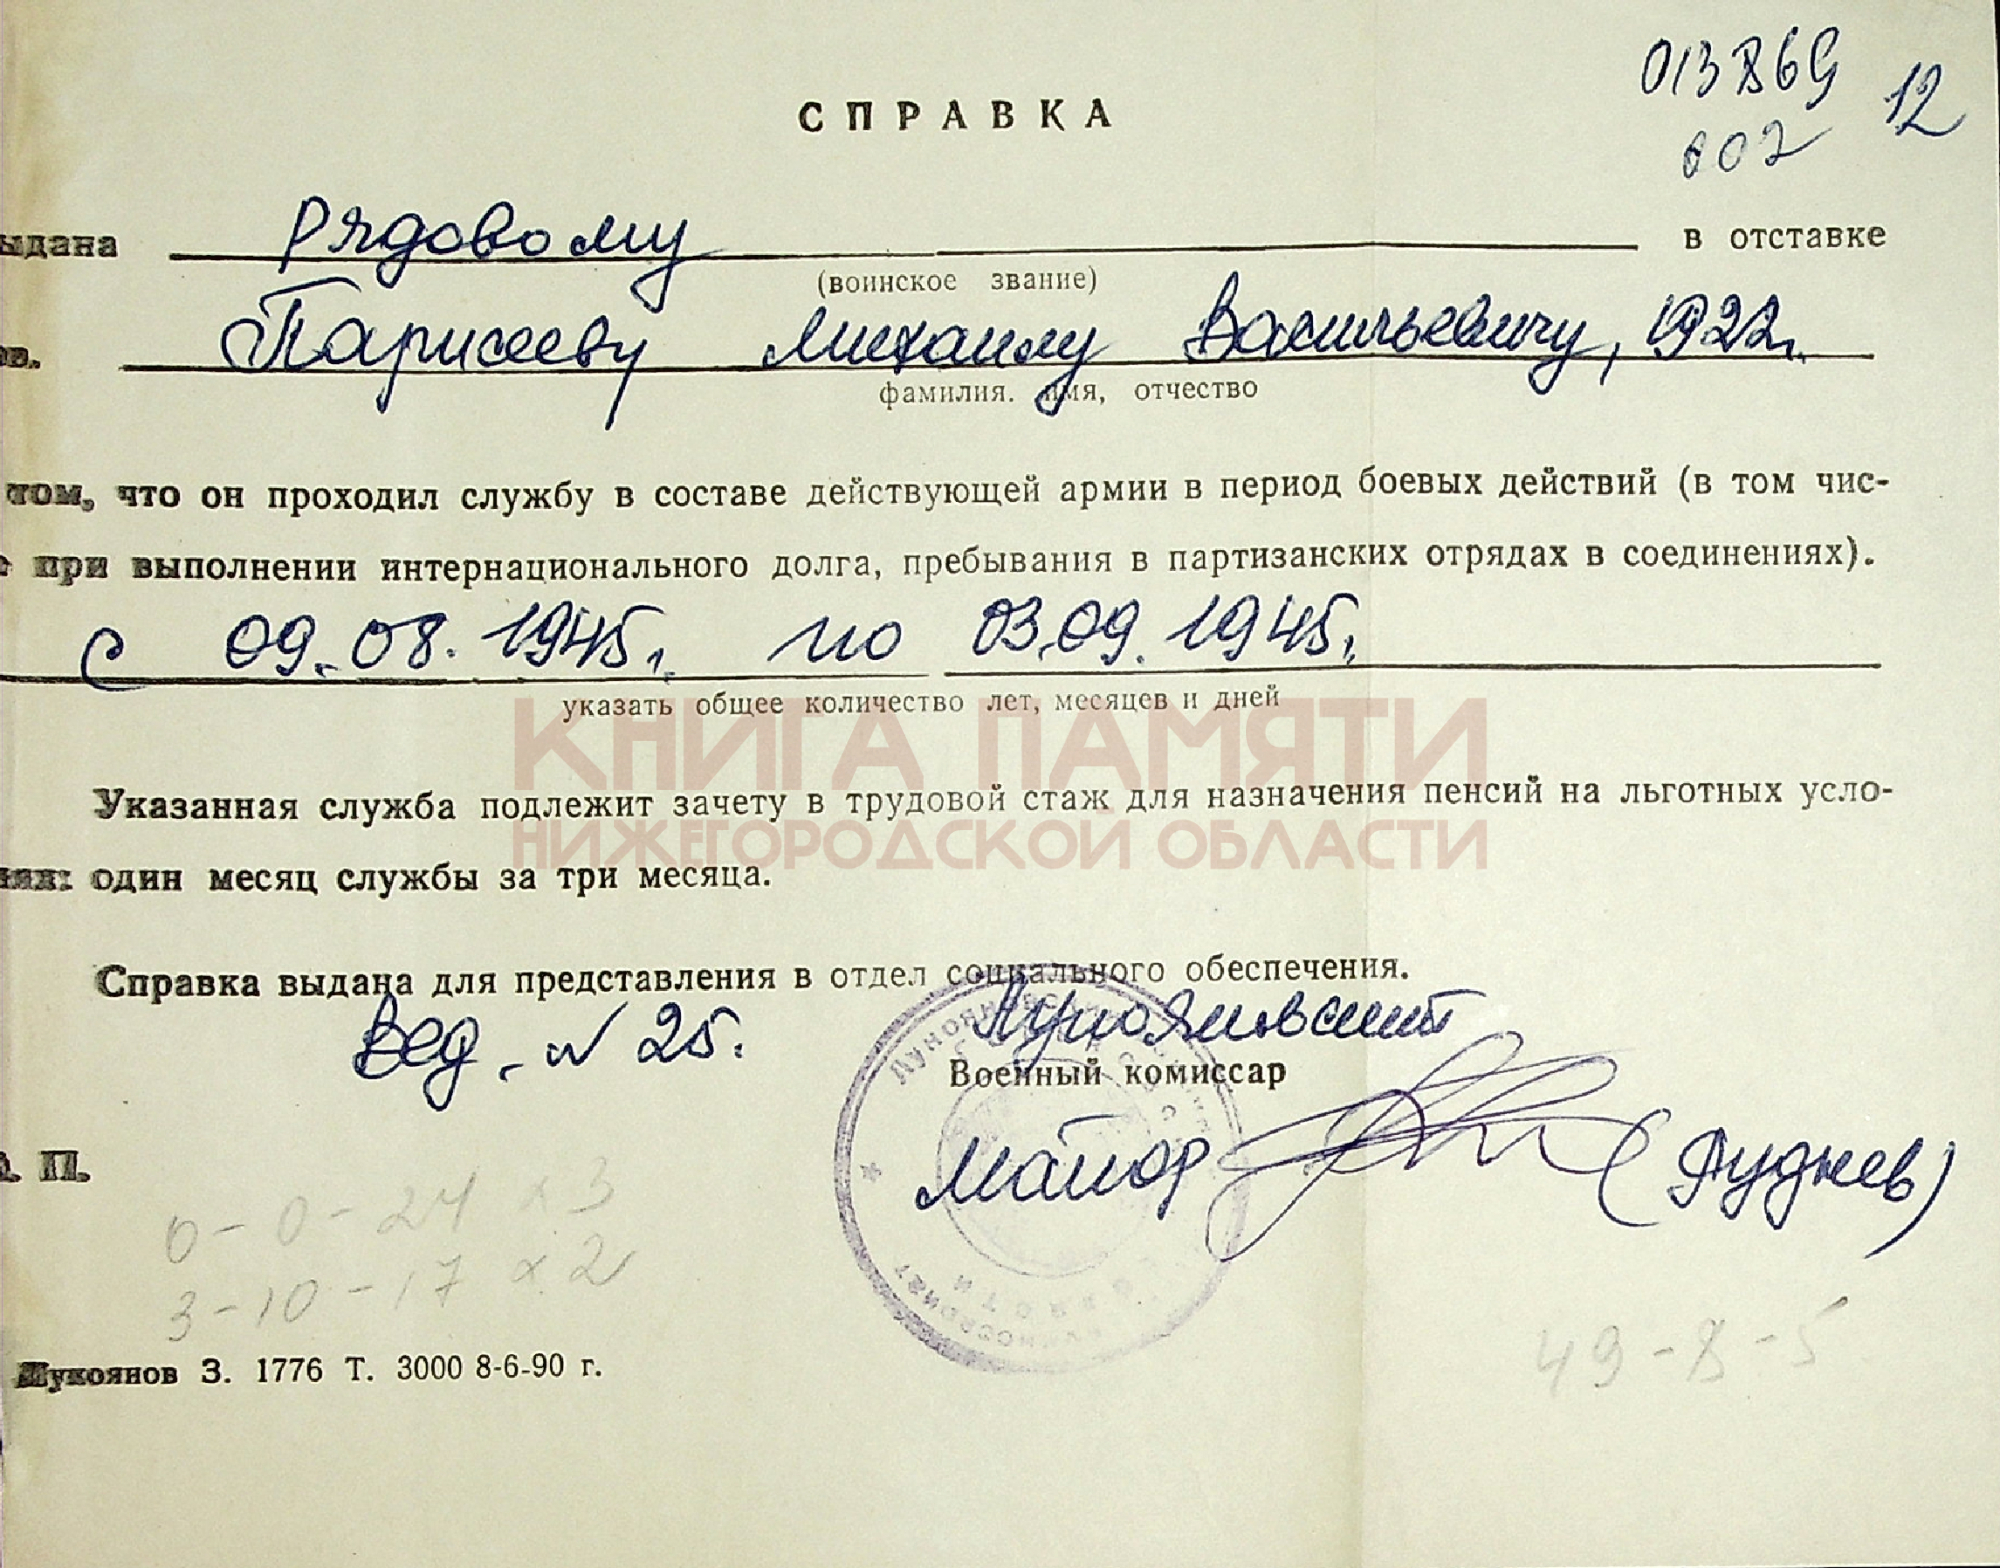 013869 12
602
СПРАВКА
ыдана рядовому в отставке
(воинское звание)
Парисееву Михаилу Васильевичу, 1922г.
фамилия. имя, отчество
том, что он проходил службу в составе действующей армии в период боевых действий (в том чис-
при выполнении интернационального долга, пребывания в партизанских отрядах в соединениях).
с 09.08.1945г. по 03.09.1945г.
указать общее количество лет, месяцев и дней
КНИГА ПАМЯТИ
НИЖЕГОРОДСКОЙ ОБЛАСТИ
Указанная служба подлежит зачету в трудовой стаж для назначения пенсий на льготных усло-
один месяц службы за три месяца.
Справка выдана для представления в отдел социального обеспечения.
Вед. № 25. Лукояновский
Военный комиссар
майор (Руднев)
П.
0-0-24 x 3
3-10-17 x 2
49-8-5
Лукоянов З. 1776 Т. 3000 8-6-90 г.